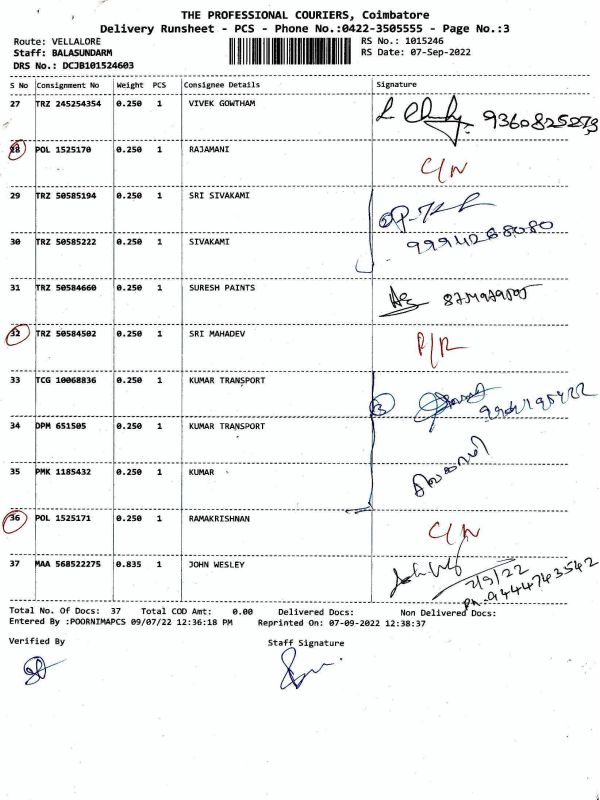 THE PROFESSIONAL COURIERS, Coimbatore
Delivery Runsheet - PCS - Phone No.:0422-3505555 - Page No.:3
Route: VELLALORE
RS No.: 1015246
Staff: BALASUNDARM
RS Date: 07-Sep-2022
DRS No.: DCJB101524603
S No Consignment No Weight PCS Consignee Details Signature
27 TRZ 245254354 0.250 1 VIVEK GOWTHAM 9360825273
28 POL 1525170 0.250 1 RAJAMANI C/N
29 TRZ 50585194 0.250 1 SRI SIVAKAMI
30 TRZ 50585222 0.250 1 SIVAKAMI 9994268080
31 TRZ 50584660 0.250 1 SURESH PAINTS
32 TRZ 50584502 0.250 1 SRI MAHADEV P/R
33 TCG 10068836 0.250 1 KUMAR TRANSPORT 3
34 DPM 651505 0.250 1 KUMAR TRANSPORT
35 PMK 1185432 0.250 1 KUMAR
36 POL 1525171 0.250 1 RAMAKRISHNAN C/N
37 MAA 568522275 0.835 1 JOHN WESLEY
7/9/22
Ph-9444743542
Total No. Of Docs: 37 Total COD Amt: 0.00 Delivered Docs: Non Delivered Docs:
Entered By :POORNIMAPCS 09/07/22 12:36:18 PM Reprinted On: 07-09-2022 12:38:37
Verified By Staff Signature